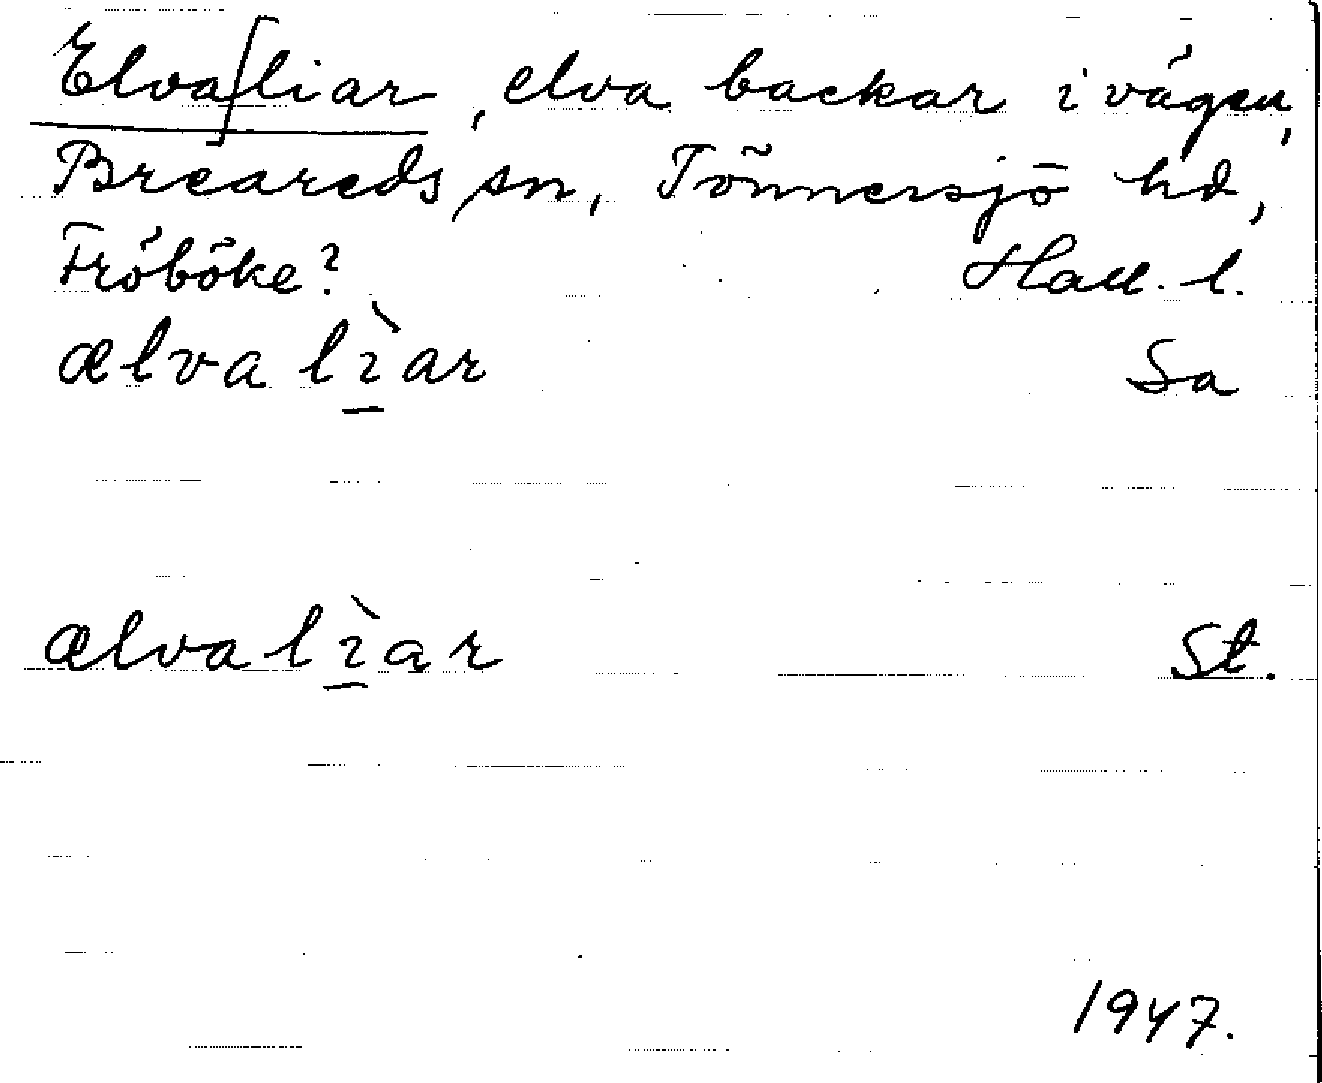 Elva[liar, elva backar i vägen,
Breareds sn, Tönnersjö hd,
Fröböke? Hall. l.
ælva lìar Sa
ælvalìar St.
1947.